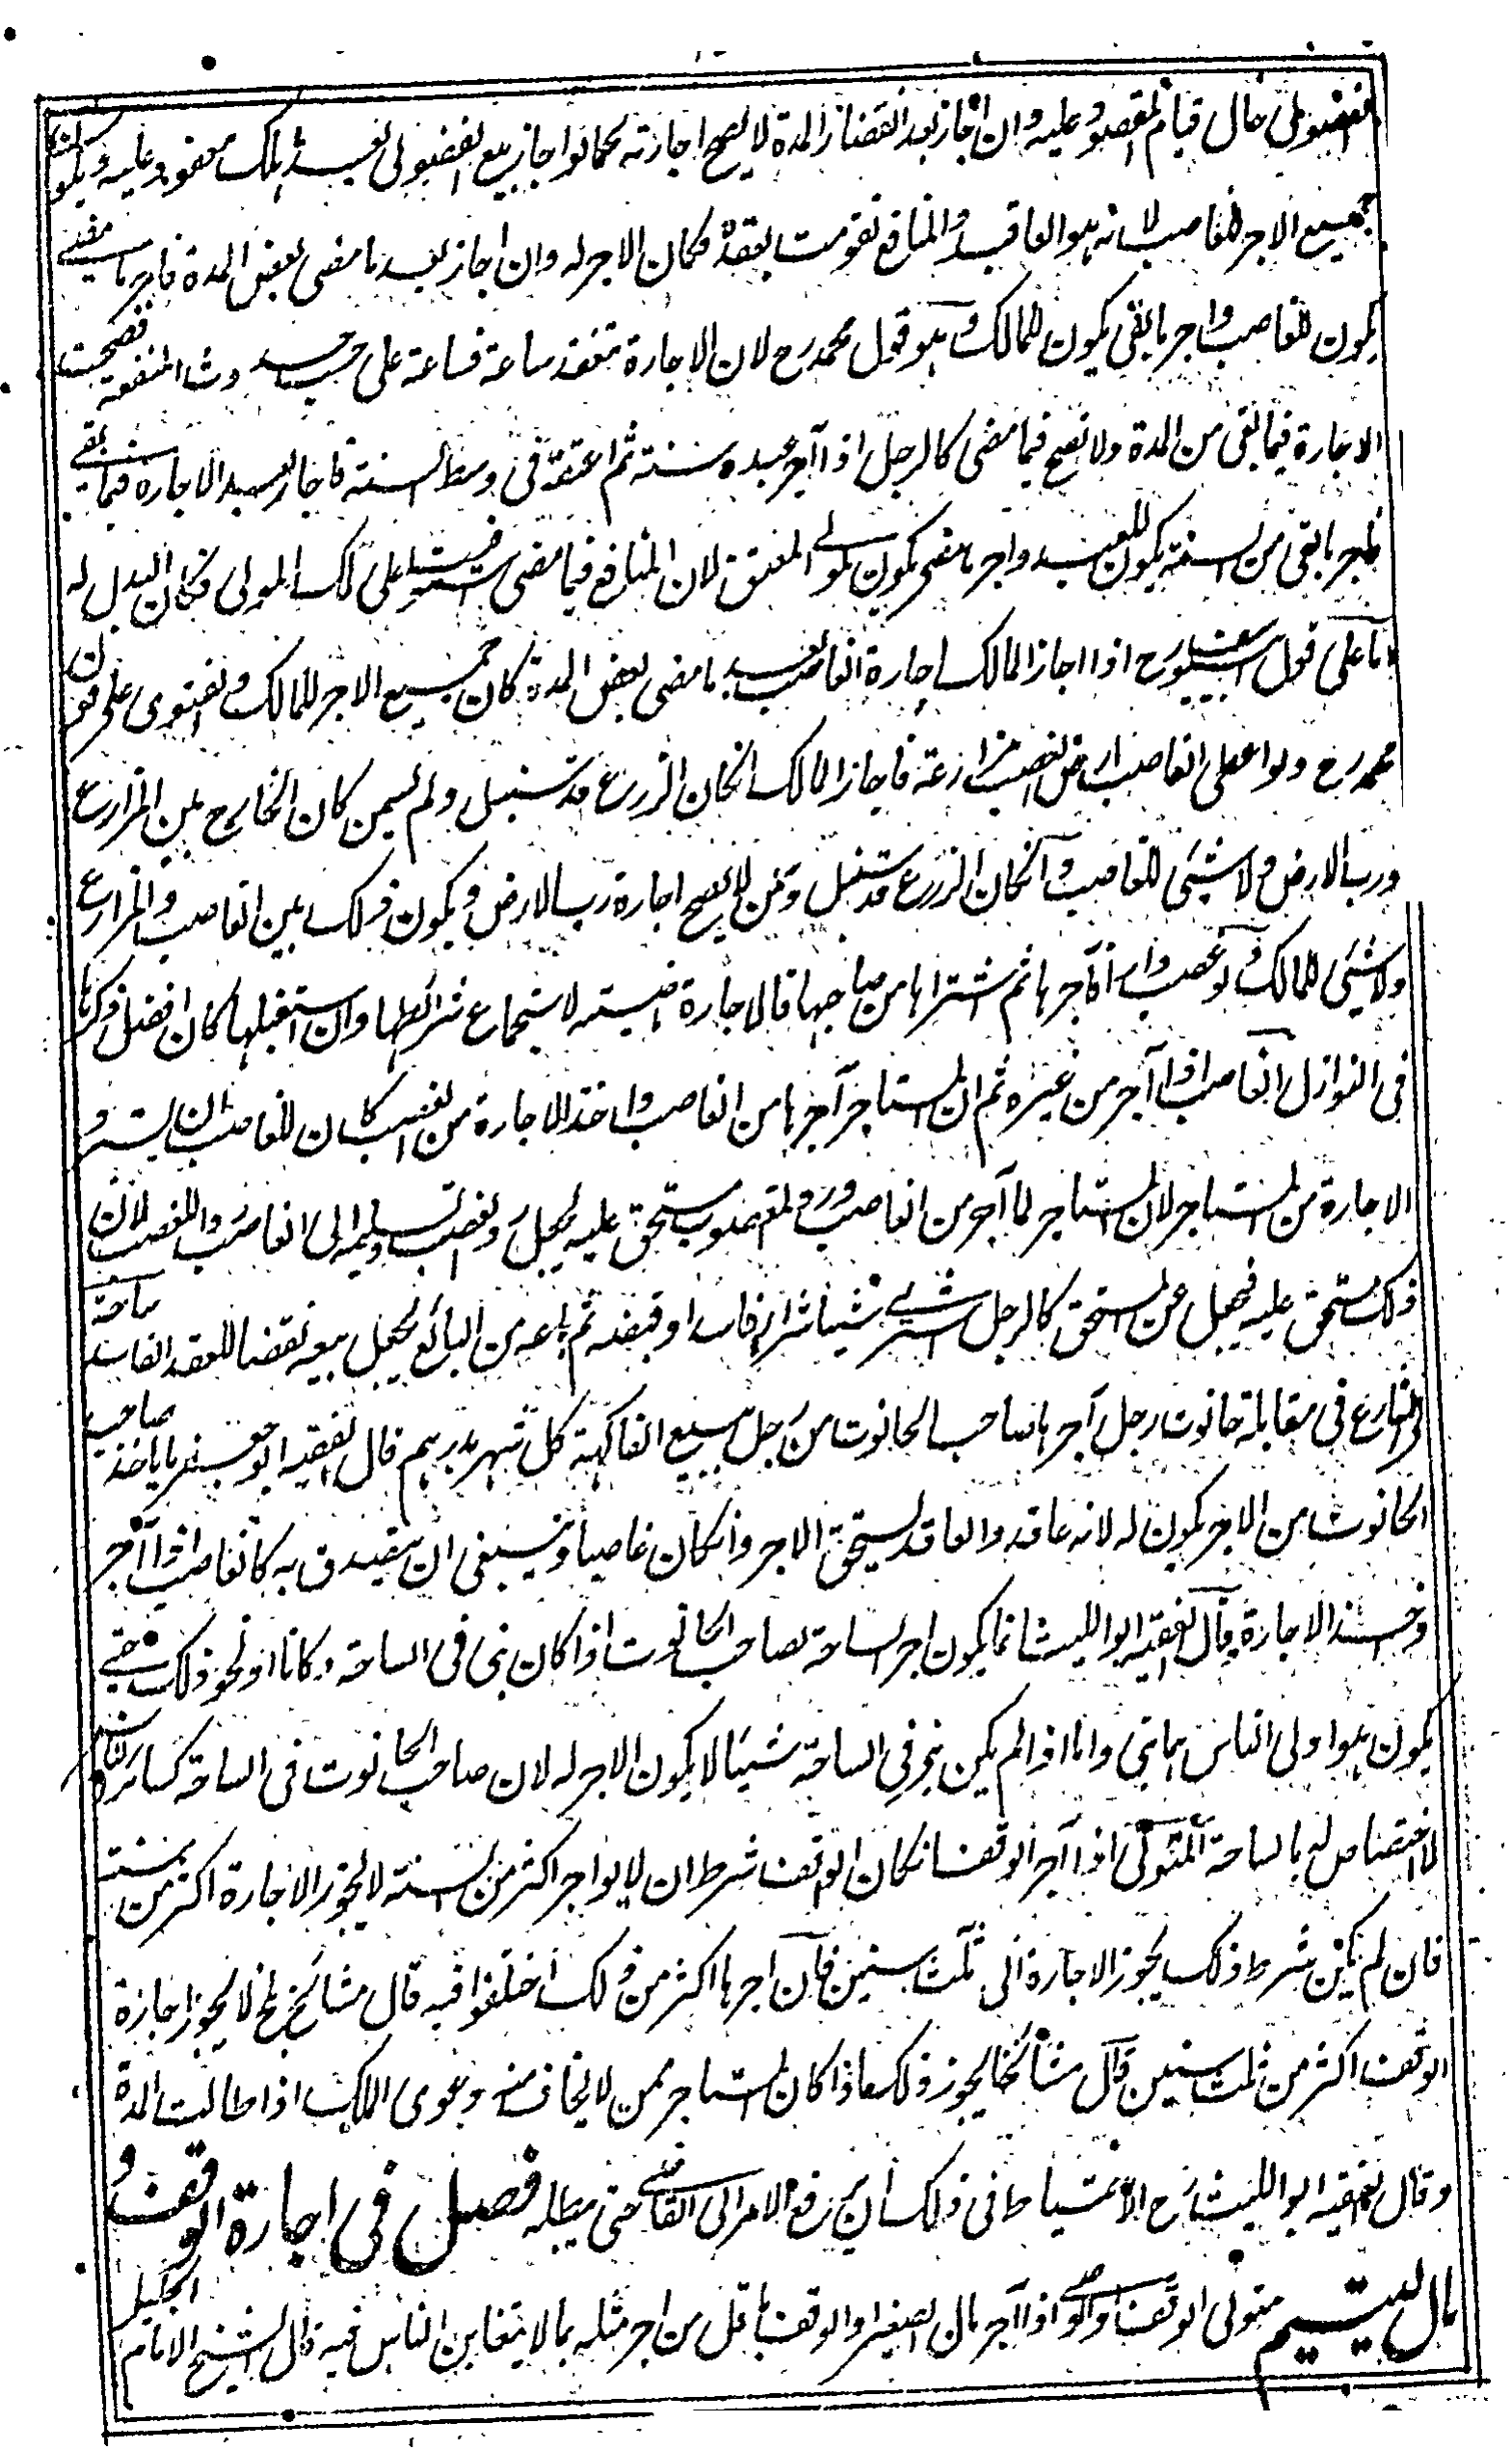 الفضولي حال قيام المعقود عليه وان اجاز بعد انقضاء المدة لا يصح اجازته كما لو اجاز بيع الفضولي بعد هلاك المعقود عليه ويكون
جميع الاجر للغاصب لانه هو العاقد والمنافع تقومت بعقده فكان الاجر له وان اجاز بعد ما مضى بعض المدة فاجر ما مضى
يكون للغاصب واجر ما بقى يكون للمالك وهو قول محمد رح لان الاجارة تنعقد ساعة فساعة على حسب حدوث المنفعة فصحت
الاجارة فيما بقى من المدة ولا تصح فيما مضى كالرجل اذا آجر عبده سنة ثم اعتقه فى وسط السنة فاجاز العبد الاجارة فيما بقى
فاجر ما بقى من السنة يكون للعبد واجر ما مضى يكون للمولى المعتق لان المنافع فيما مضى استوفيت على ملك المولى فكان البدل له
اما على قول ابى يوسف رح اذا اجاز المالك اجارة الغاصب بعد ما مضى بعض المدة كان جميع الاجر للمالك والفتوى على قول
محمد رح ولو اعطى الغاصب ارض الغصب مزارعة فاجاز المالك انكان الزرع قد سنبل ولم يسمن كان الخارج بين المزارع
ورب الارض ولا شيئ للغاصب وانكان الزرع قد سنبل وسمن لا يصح اجازة رب الارض ويكون ذلك بين الغاصب والمزارع
ولا شيئ للمالك ولو غصب دارا فآجرها ثم اشتراها من صاحبها فالاجارة ماضيته لاستجماع شرائطها وان استقبلها كان افضل وذكر
فى النوازل الغاصب اذا آجر من غيره ثم ان المستاجر آجرها من الغاصب واخذ الاجارة من الغصب كان للغاصب ان يسترد
الاجارة من المستاجر لان المستاجر لما آجر من الغاصب ورد المغصوب مستحق عليه يجعل رد الغصب وتسليمه الى الغاصب رد اللغصب لان
ذلك مستحق عليه فيجعل عن المستحق كالرجل اشترى شيئا شراء فاسدا وقبضه ثم باعه من البائع يجعل بيعه نقضا للعقد الفاسد ساحة
فى الشارع فى مقابلة حانوت رجل آجرها صاحب الحانوت من رجل يبيع الفاكهة كل شهر بدرهم قال الفقيه ابو جعفر ما ياخذ صاحب
الحانوت من الاجر يكون له لانه عاقد والعاقد يستحق الاجر وانكان غاصبا وينبغى ان يتصدق به كالغاصب اذا آجر
واخذ الاجارة قال الفقيه ابو الليث انما يكون اجر الساحة لصاحب الحانوت اذا كان بنى فى الساحة دكانا او نحو ذلك حتى
يكون هو اولى الناس بها بنى واما اذا لم يكن بنى فى الساحة شيئا لا يكون الاجر له لان صاحب الحانوت فى الساحة كسائر الناس
لا اختصاص له بالساحة المتولى اذا آجر الوقف انكان الوقف شرط ان لا يواجر اكثر من السنة لا يجوز الاجارة اكثر من سنة
فان لم يكن شرط ذلك يجوز الاجارة الى ثلث سنين فان آجرها اكثر من ذلك اختلفوا فيه قال مشائخ بلخ لا يجوز اجارة
الوقف اكثر من ثلث سنين قال مشائخنا يجوز ذلك اذا كان المستاجر ممن لا يخاف منه دعوى الملك اذا طالت المدة
وقال الفقيه ابو الليث رح الاحتياط فى ذلك ان يرفع الامر الى القاضى حتى يبطله فصل فى اجارة الوقف و
مال اليتيم متولى الوقف او الوصى اذا آجر مال الصغير او الوقف باقل من اجر مثله بما لا يتغابن الناس فيه قال الشيخ الامام الجليل